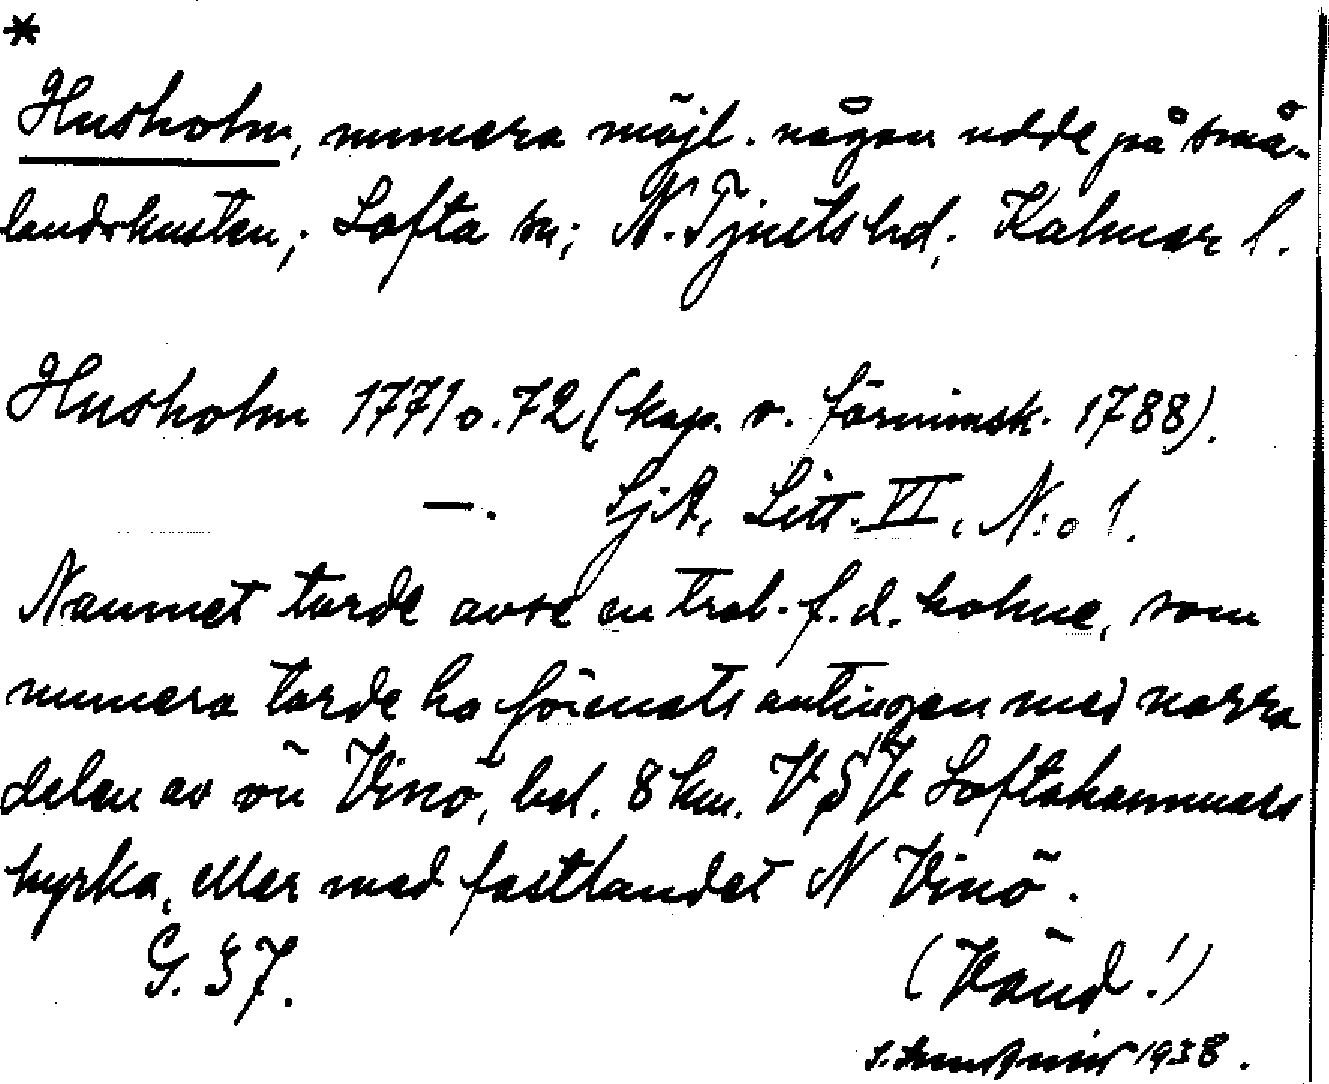 *
Husholm, numera möjl. någon udde på små-
landskusten; Lofta sn; N. Tjusts hd; Kalmar l.
Husholm 1771 o. 72 (kop. v. förminsk. 1788).
—. SjA, Litt. VI, N:o 1.
Namnet torde avse en trol. f.d. holme, som
numera torde ha förenats antingen med norra
delen av ön Vinö, bel. 8 km. VSV Loftahammars
kyrka, eller med fastlandet N Vinö.
G. 37.
(Vänd!)
1938.